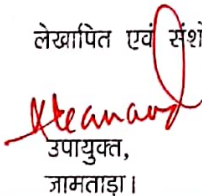 लेखापित एवं संशो
उपायुक्त,
जामताड़ा।